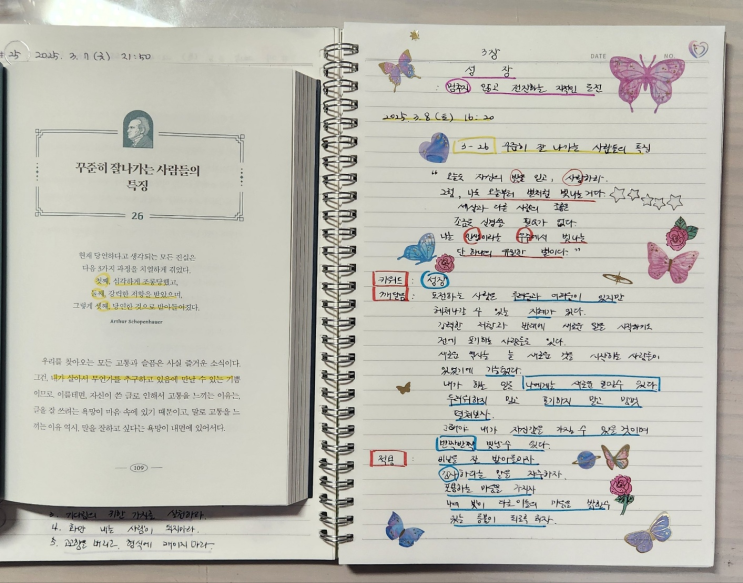 2025. 3. 7 (금) 21:50
꾸준히 잘나가는 사람들의
특징
26
현재 당연하다고 생각되는 모든 진실은
다음 3가지 과정을 치열하게 겪었다.
첫째, 심각하게 조롱당했고,
둘째, 강력한 저항을 받았으며,
그렇게 셋째, 당연한 것으로 받아들여졌다.
Arthur Schopenhauer
우리를 찾아오는 모든 고통과 슬픔은 사실 즐거운 소식이다.
그건, 내가 살아서 무언가를 추구하고 있음에 만날 수 있는 기쁨
이므로. 이를테면, 자신이 쓴 글로 인해서 고통을 느끼는 이유는,
글을 잘 쓰려는 욕망이 마음 속에 있기 때문이고, 말로 고통을 느
끼는 이유 역시, 말을 잘하고 싶다는 욕망이 내면에 있어서다.
109
4. 화만 내는 사람이
5. 고집을 버리고, 형식에 매이지 마라
DATE
NO.
3장
성 장
: 멈추지 않고 전진하는 지적인 도전
2025. 3. 8 (토) 16:20
3-26 꾸준히 잘 나가는 사람들의 특징
" 오늘도 자신의 밤을 믿고, 사랑하라.
그럼, 나도 오늘부터 별처럼 빛나는 거다.
세상과 다른 사람의
조금은 필요가 없다.
나는 에서 빛나는
단 하나의 유일한 별이다. "
키워드 : 성장
깨달음 : 도전하는 사람은 있지만
헤쳐나갈 수 있는 지혜가 있다.
강력한 저항과 반대에 새로운 일을 시작하기도
전에 포기하는 사람들도 있다.
새로운 역사는 늘 새로운 것을 시작하는 사람들이
있었기에 가능했다.
내가 하는 일은 나에게는 새로운 일 수 있다
두려워하지 말고 포기하지 말고 맘껏
펼쳐보자.
그래야 내가 자신감을 가질 수 있을 것이며
반짝반짝 빛날 수 있다.
적용 : 비난을 잘 받아들이자
감사하다는 말을 자주하자
마음을 가지자
나의 빛이 다른 이들의 마음을 밝힐 수
있는 등불이 되도록 하자.